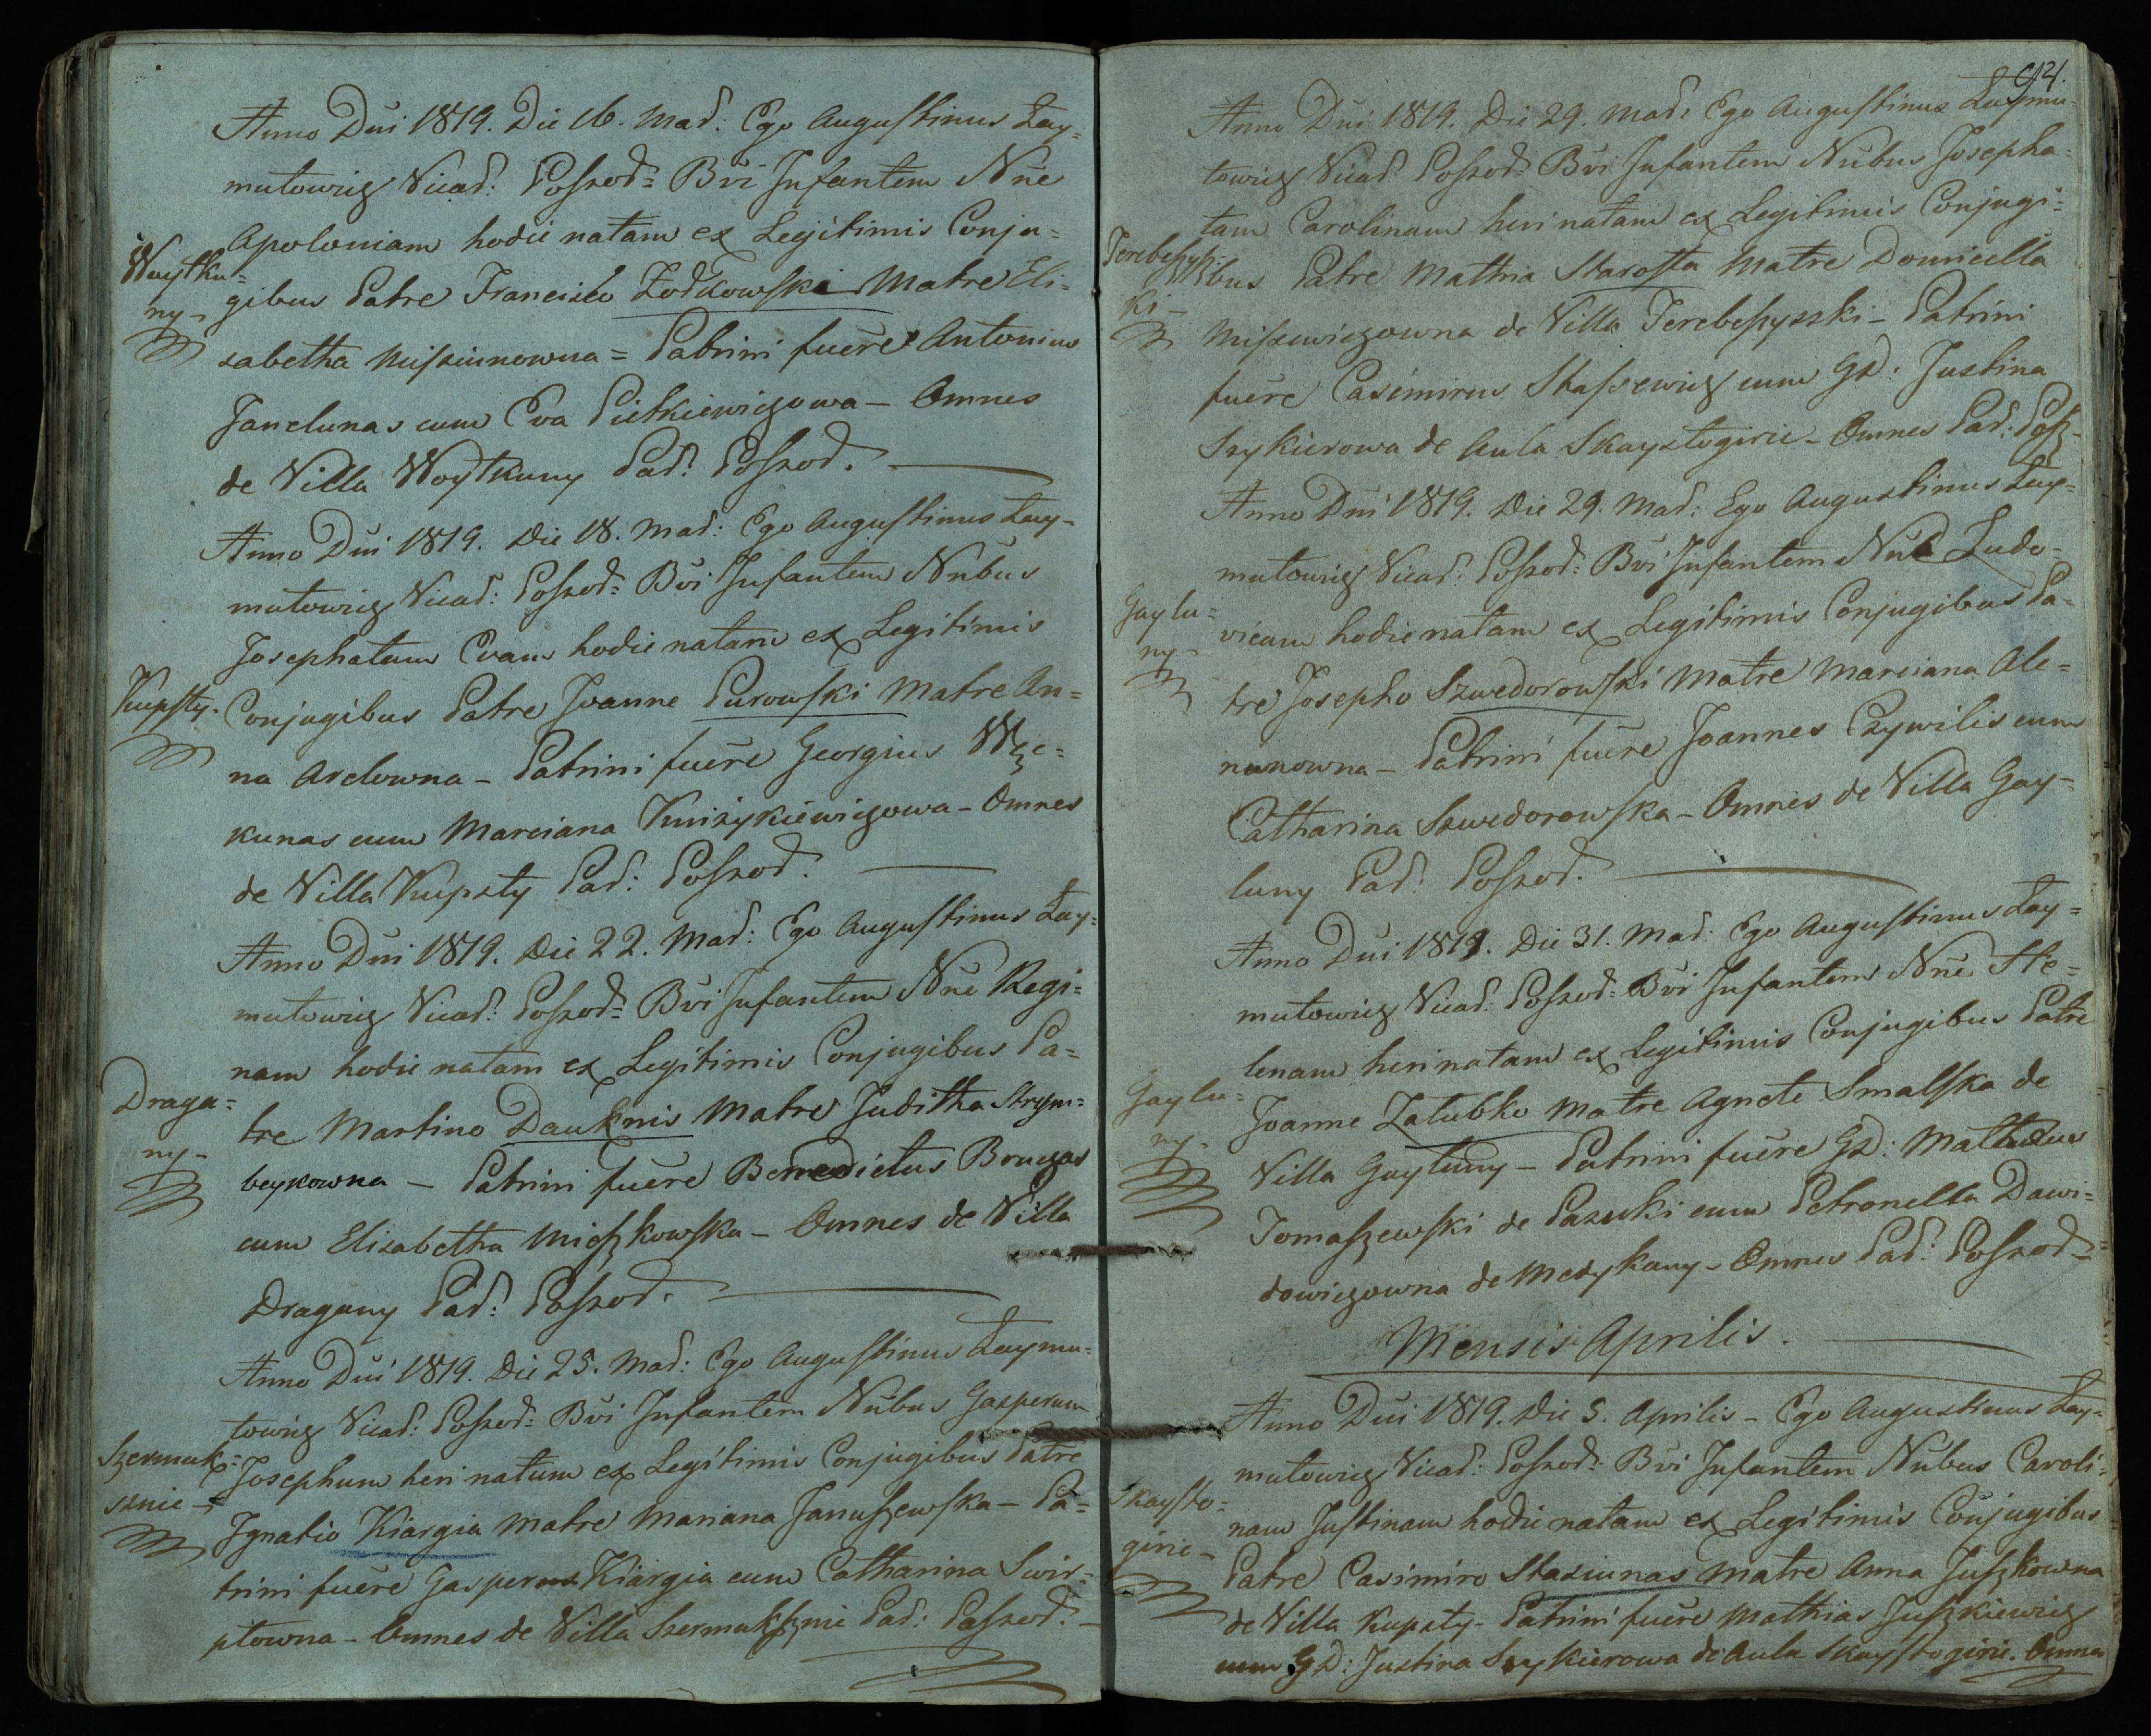 Anno Dni 1819. Die 16. Mar: Ego Augustinus Łay=
mutowicz Vicar: Poszod= Bvi Infantem Nne
Apoloniam hodie natam ex Legitimis Conju=
Woytku=
ny-
gibus Patre Francisko Żołkowski Matre Eli=
sabetha Misziunowna = Patrini fuere Antonius
Janelunas cum Eva Pietkiewiczowa - Omnes
de Villa Woytkuny Par: Poszod.
Anno Dni 1819. Die 18. Mar: Ego Augustinus Łay-
mutowicz Vicar: Poszod= Bvi Infantem Nnbus
Josephatam Evam hodie natam ex Legitimis
Kupsty.
Conjugibus Patre Joanne Purowski Matre An=
na Arelowna - Patrini fuere Georgius
kunas cum Marciana Kniżykiewiczowa - Omnes
de Villa Kupszty Par: Poszod.
Anno Dni 1819. Die 22. Mar: Ego Augustinus Łay=
mutowicz Vicar: Poszod= Bvi Infantem Nne Regi=
nam hodie natam ex Legitimis Conjugibus Pa=
Draga=
ny-
tre Martino Dauknis Matre Juditha Strym=
beykowna - Patrini fuere Benedictus Bruzas
cum Elisabetha Mieszkowska - Omnes de Villa
Dragany Par: Poszod.
Anno Dni 1819. Die 25. Mar: Ego Augustinus Łaymu=
towicz Vicar: Poszod= Bvi Infantem Nnbus Gasperum
Szermuk=
sznie-
Josephum heri natum ex Legitimis Conjugibus Patre
Ignatio Kiargia Matre Mariana Januszewska - Pa=
trini fuere Gasperus Kiargia cum Catharina Swir=
ptowna - Omnes de Villa Szermuksznie Par: Poszod.
Anno Dni 1819. Die 29. Mar: Ego Augustinus Łaymu-
towicz Vicar: Poszod= Bvi Infantem Nnbus Josepha=
tam Carolinam heri natam ex Legitimis Conjugi=
Terebeszysz
ki-
bus Patre Mathia Starosta Matre Domicella
Miszewiczowna de Villa Terebeszysski - Patrini
fuere Casimirus Staszewicz cum GD: Justina
Szykierowa de Aula Skaystogirie - Omnes Par: Posz-
Anno Dni 1819. Die 29. Mar: Ego Augustinus Łay=
mutowicz Vicar: Poszod= Bvi Infantem Nne Ludo=
Gaylu=
ny-
vicam hodie natam ex Legitimis Conjugibus Pa=
tre Josepho Szwedorowski Matre Marciana Ale=
nunowna - Patrini fuere Joannes Czywilis cum
Catharina Szwedorowska - Omnes de Villa Gay-
luny Par: Poszod.
Anno Dni 1819. Die 31. Mar: Ego Augustinus Łay=
mutowicz Vicar: Poszod= Bvi Infantem Nne He=
lenam heri natam ex Legitimis Conjugibus Patre
Gaylu=
ny-
Joanne Załubko Matre Agnete Smalska de
Villa Gayluny - Patrini fuere GD: Mathaeus
Tomaszewski de Paszuki cum Petronella Dawi=
dowiczowna de Medykany - Omnes Par: Poszod=
Mensis Aprilis.
Anno Dni 1819. Die 5. Aprilis - Ego Augustinus Łay=
mutowicz Vicar: Poszod= Bvi Infantem Nnbus Caroli=
Skaysto=
girie-
nam Justinam hodie natam ex Legitimis Conjugibus
Patre Casimiro Stasiunas Matre Anna Juszkowna
de Villa Kupszty - Patrini fuere Mathias Juszkiewicz
cum GD: Justina Szykierowa de Aula Skaystogirie. Omnes